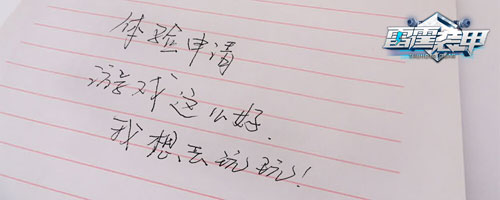 雷霆装甲
体验申请
游戏这么好.
我想去玩玩!